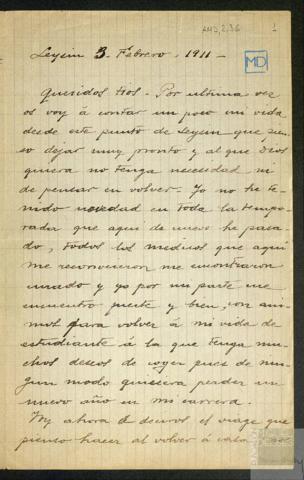 AMD, 2.36
1
MD
Leysin 3. Febrero. 1911 -
Queridos tios. - Por ultima vez
os voy á contar un poco mi vida
desde este punto de Leysin que pien-
so dejar muy pronto y al que Dios
quiera no tenga necesidad ni
de pensar en volver. Yo no he te-
nido novedad en toda la tempo-
rada que aqui de nuevo he pasa-
do, todos los medicos que aqui
me reconocieron me encontraron
curado y yo por mi parte me
encuentro fuerte y bien, con ani-
mos para volver á mi vida de
estudiante á la que tengo mu-
chos deseos de coger pues de nin-
gun modo quisiera perder un
nuevo año en mi carrera.
Voy ahora á deciros el viage que
pienso hacer al volver á casa